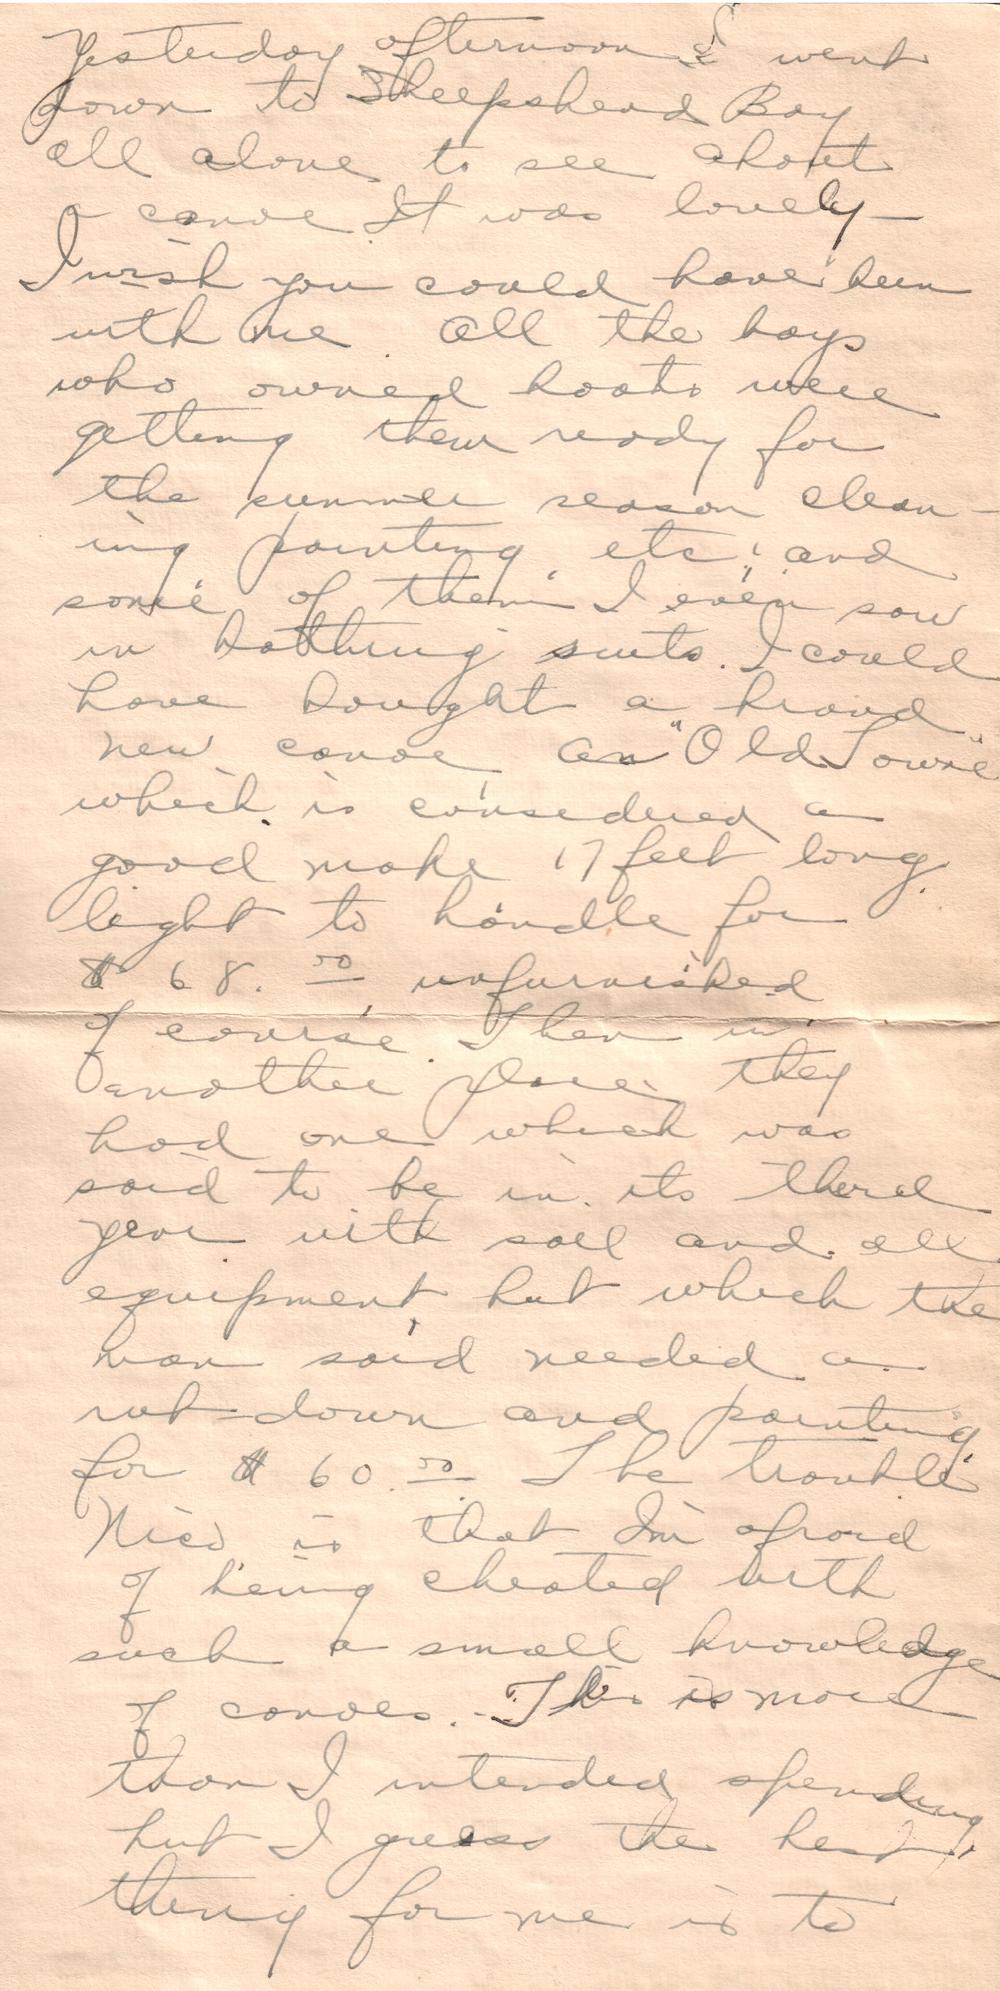 Yesterday afternoon I went
down to Sheepshead Bay
all alone to see about
a canoe It was lovely—
I wish you could have been
with me. All the boys
who owned boats were
getting them ready for
the summer season clean-
ing painting etc; and
some of them I even saw
in bathing suits. I could
have bought a brand
new canoe an "Old Towne"
which is considered a
good make 17 feet long,
light to handle for
$ 68.00 unfurnished
of course. Then in
another place, they
had one which was
said to be in its third
year with sail and all
equipment but which the
man said needed a
rub-down and painting
for $ 60.00 The trouble
is that Im afraid
of being cheated with
such a small knowledge
of canoes. This is more
than I intended spending,
but I guess the best,
thing for me is to